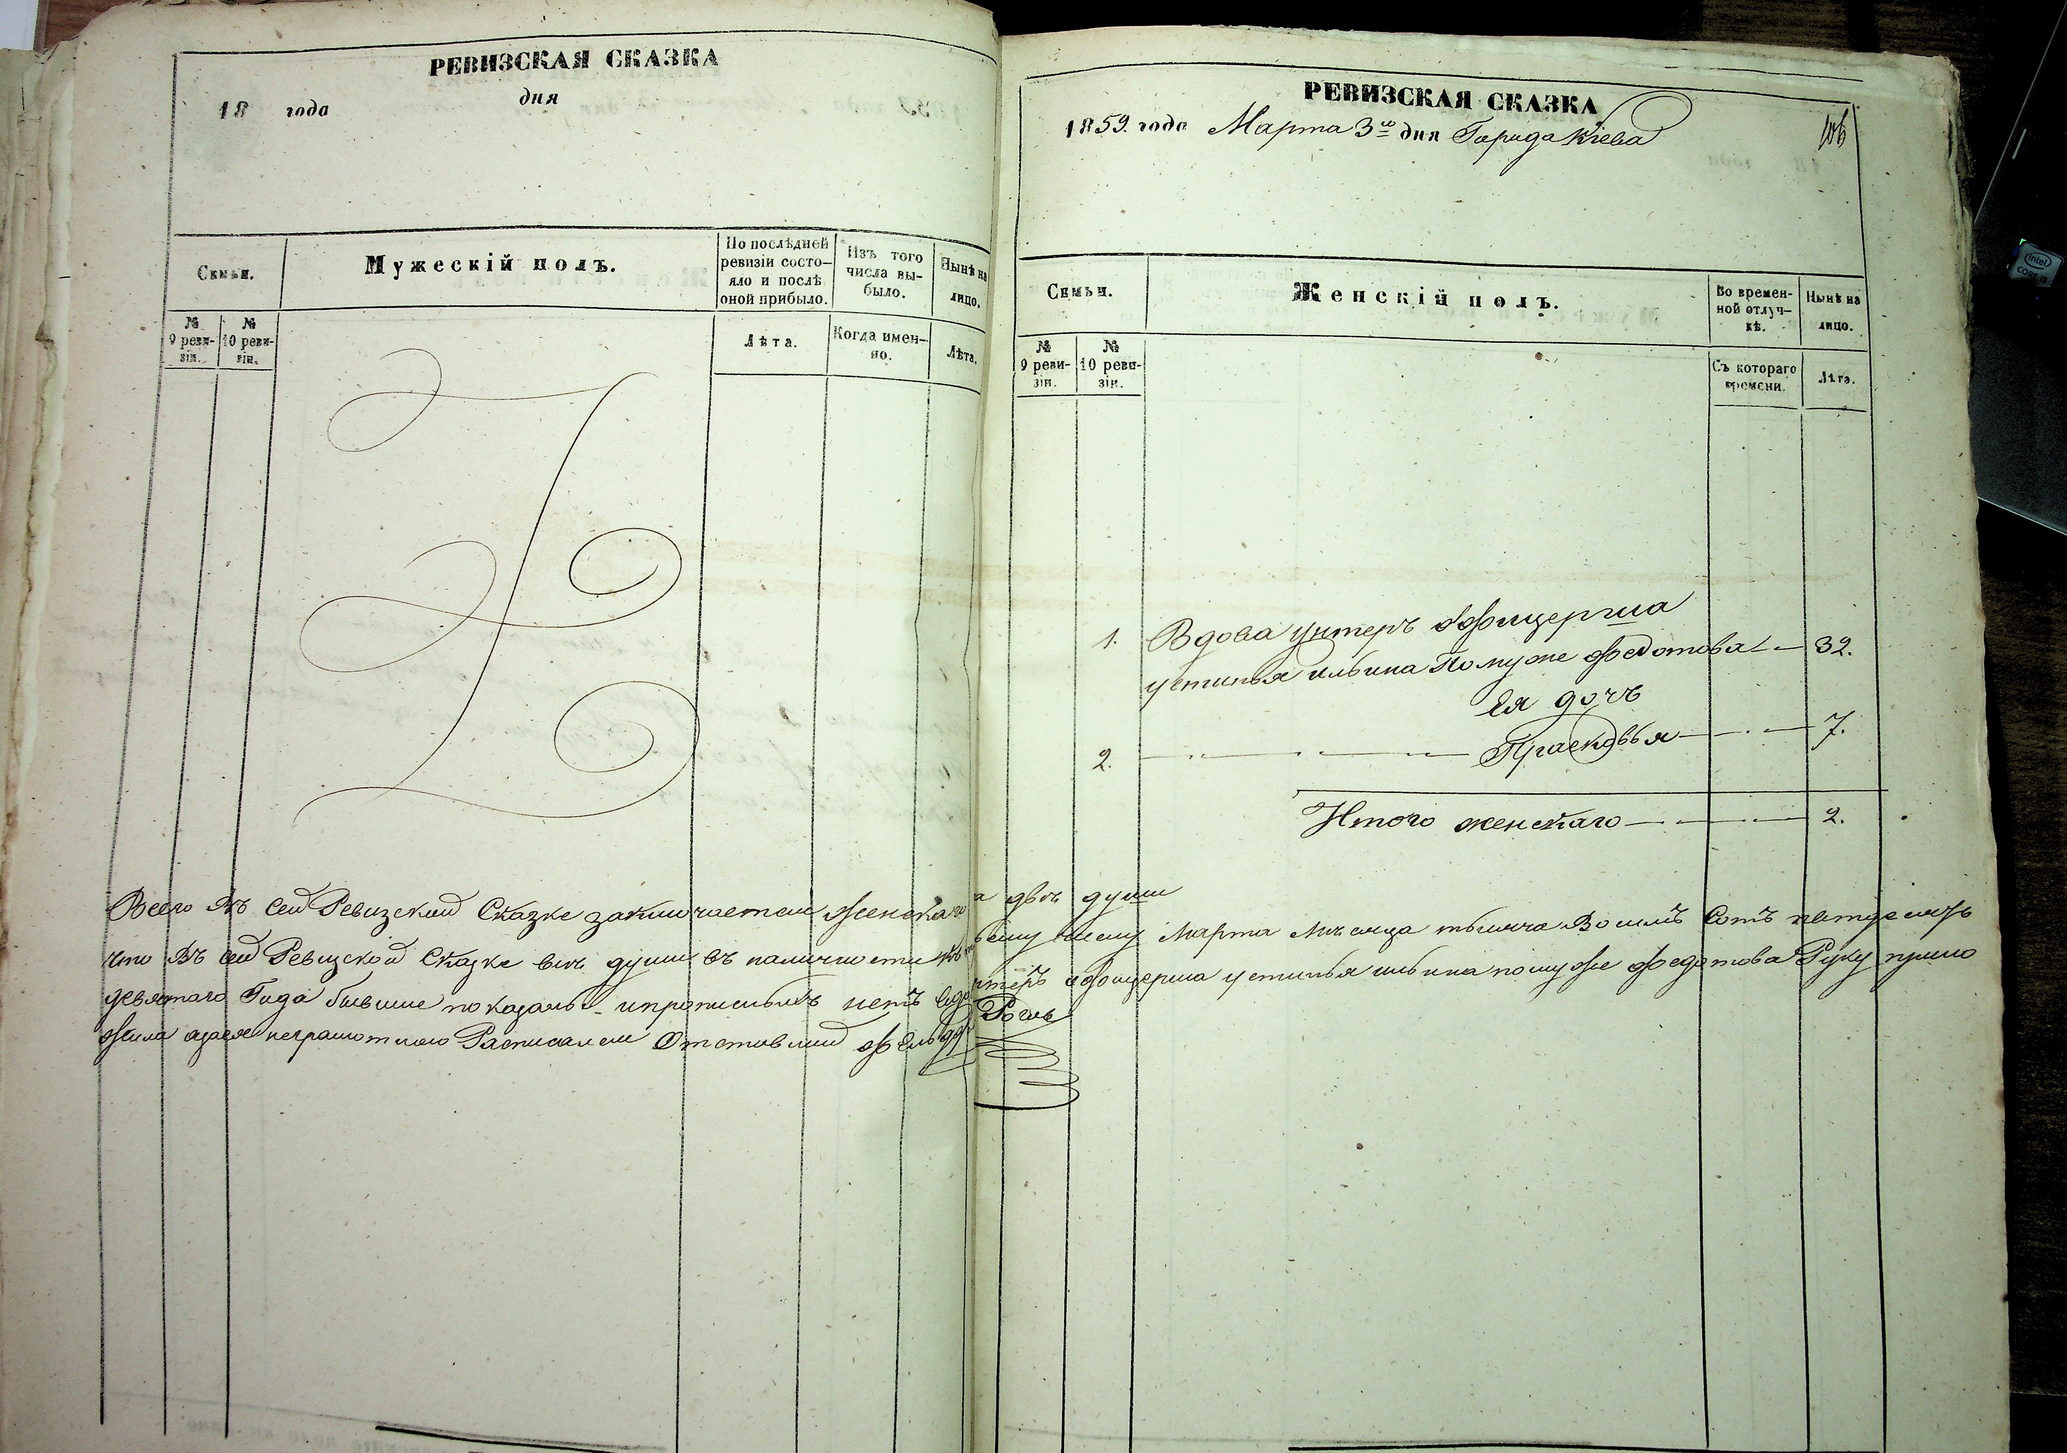 РЕВИЗСКАЯ СКАЗКА
18 года дня
Семьи.
Мужескій полъ.
По послѣдней ревизіи состо-
яло и послѣ
оной прибыло.
Изъ того
числа вы-
было.
Нынѣ на
лицо.
№
9 реви-
зіи.
№
10 реви-
зіи.
Лѣта.
Когда имен-
но.
Лѣта.
РЕВИЗСКАЯ СКАЗКА
1859. года Марта 3го дня Города Кіева
106
Семьи.
Женскій полъ.
Во времен-
ной отлуч-
кѣ.
Нынѣ на
лицо.
№
9 реви-
зіи.
№
10 реви-
зіи.
Съ котораго
времени.
Лѣта.
1. Вдова унтеръ офицерша
устинья ильина По муже федотова 32.
Ея дочь
2. Прасковья 7.
Итого женскаго 2.
Всего Въ сей Ревизской Сказке заключается женскаго двѣ души
что Въ сей Ревизской Сказке все души въ наличности къ сему Марта Мѣсяца тысяча Восемъ Сотъ пятдесятъ
девятаго Года бывшие показаны и прописныхъ нетъ унтеръ офицерша устинья ильина по муже федотова Руку прило
жила а за ея неграмотною Расписался Отставной